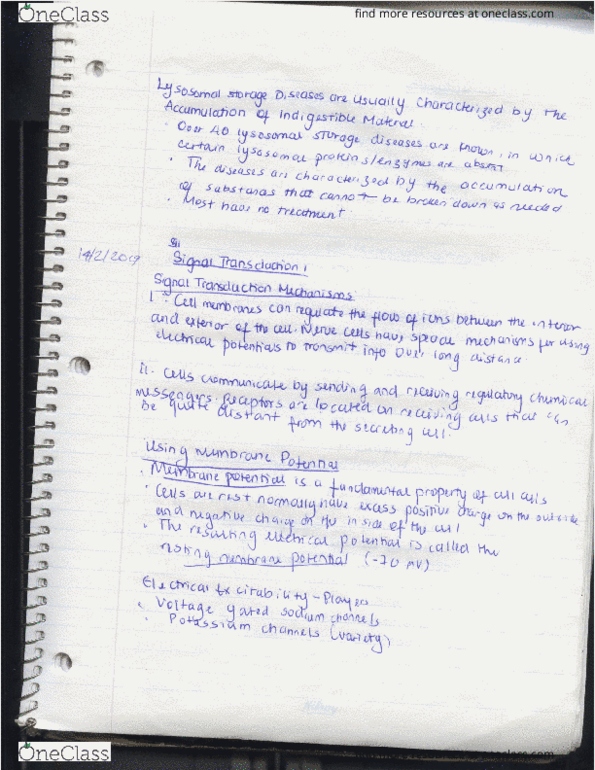 OneClass
find more resources at oneclass.com
Lysosomal storage Diseases are usually characterized by the
Accumulation of Indigestible Material
• Over 40 lysosomal storage diseases are known, in which
certain lysosomal proteins/enzymes are absent
• The diseases are characterized by the accumulation
of substances that cannot be broken down as needed
• Most have no treatment.
14/2/2019
Signal Transduction 1
Signal Transduction Mechanisms
I • Cell membranes can regulate the flow of ions between the interior
and exterior of the cell. Nerve cells have special mechanisms for using
electrical potentials to transmit info over long distance.
II. Cells communicate by sending and receiving regulatory chemical
messengers. Receptors are located on receiving cells that can
be quite distant from the secreting cell.
Using Membrane Potential
• Membrane potential is a fundamental property of all cells
• Cells at rest normally have excess positive charge on the outside
and negative charge on the inside of the cell
• The resulting electrical potential is called the
resting membrane potential (-70 mV)
Electrical Excitability - Players
• Voltage gated sodium channels
• Potassium channels (variety)
OneClass